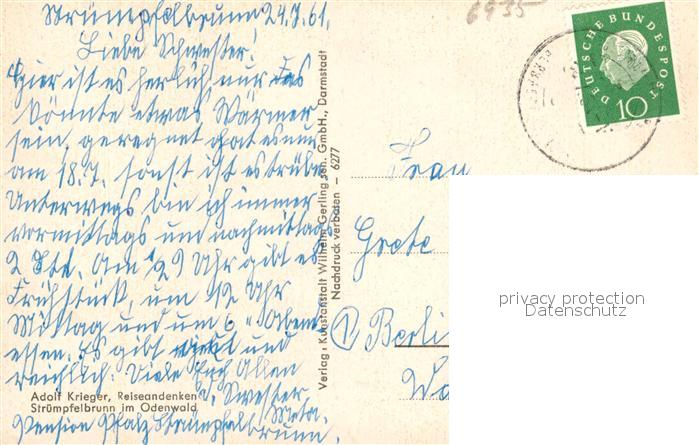 6935
Strümpfelbrunn 24.7.61.
Liebe Schwester!
Hier ist es herlich, nur das
könnte etwas Wärmer
sein, geregnet hat es nur
am 18.7. sonst ist es trübe
Unterwegs bin ich immer
vormittags und nachmittags
2 Std. Am 9 Uhr gibt es
Frühstück, um 12 Uhr
Mittag und um 6 " Abend
essen. Es gibt und
reichlich. Viele Euch Allen
d. Swester
Meta.
Pension Pfalz Strümpfelbrunn.
Adolf Krieger, Reiseandenken
Strümpfelbrunn im Odenwald
Verlag: Kunstanstalt Wilhelm Gerling sen. GmbH., Darmstadt
Nachdruck verboten — 6277
DEUTSCHE BUNDESPOST
10
Frau
Grete
1 Berli
privacy protection
Datenschutz